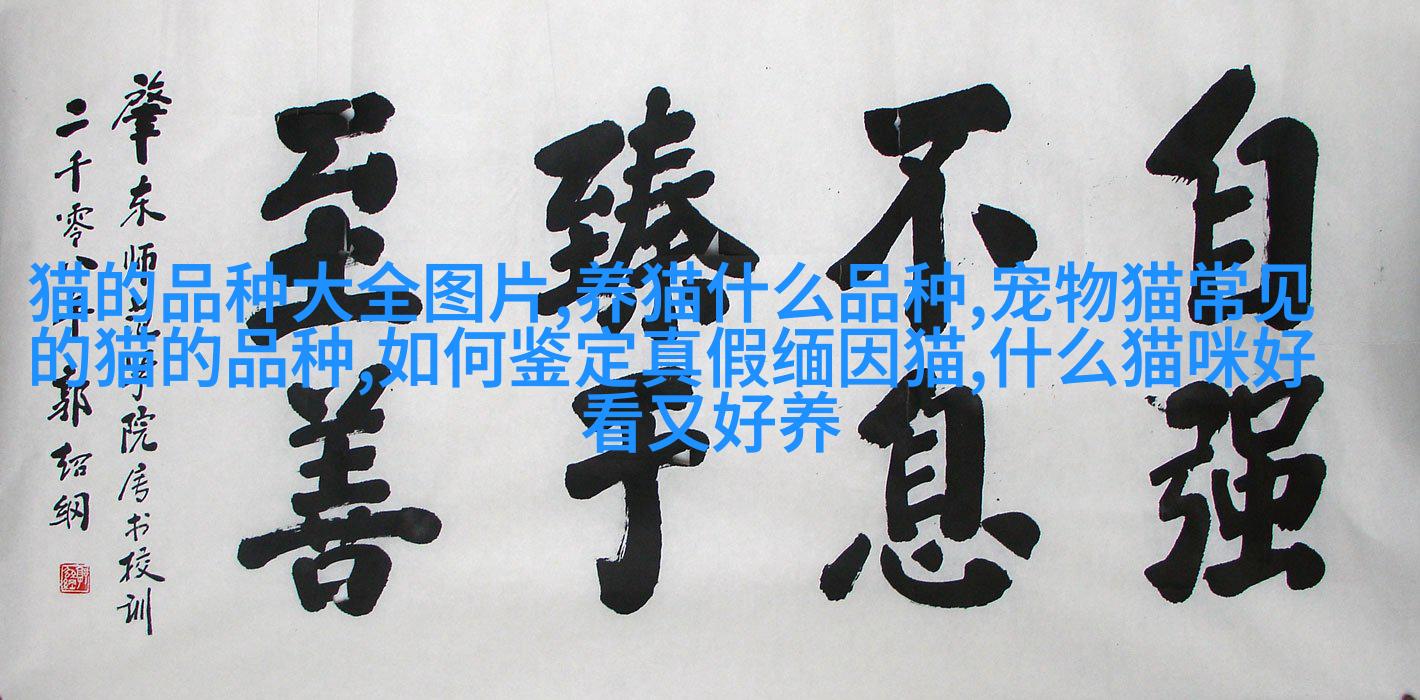 自强
不息
臻于
至善
肇东师范学院属书校训
二千零八年郭绍纲
猫的品种大全图片,养猫什么品种,宠物猫常见
的猫的品种,如何鉴定真假缅因猫,什么猫咪好
看又好养